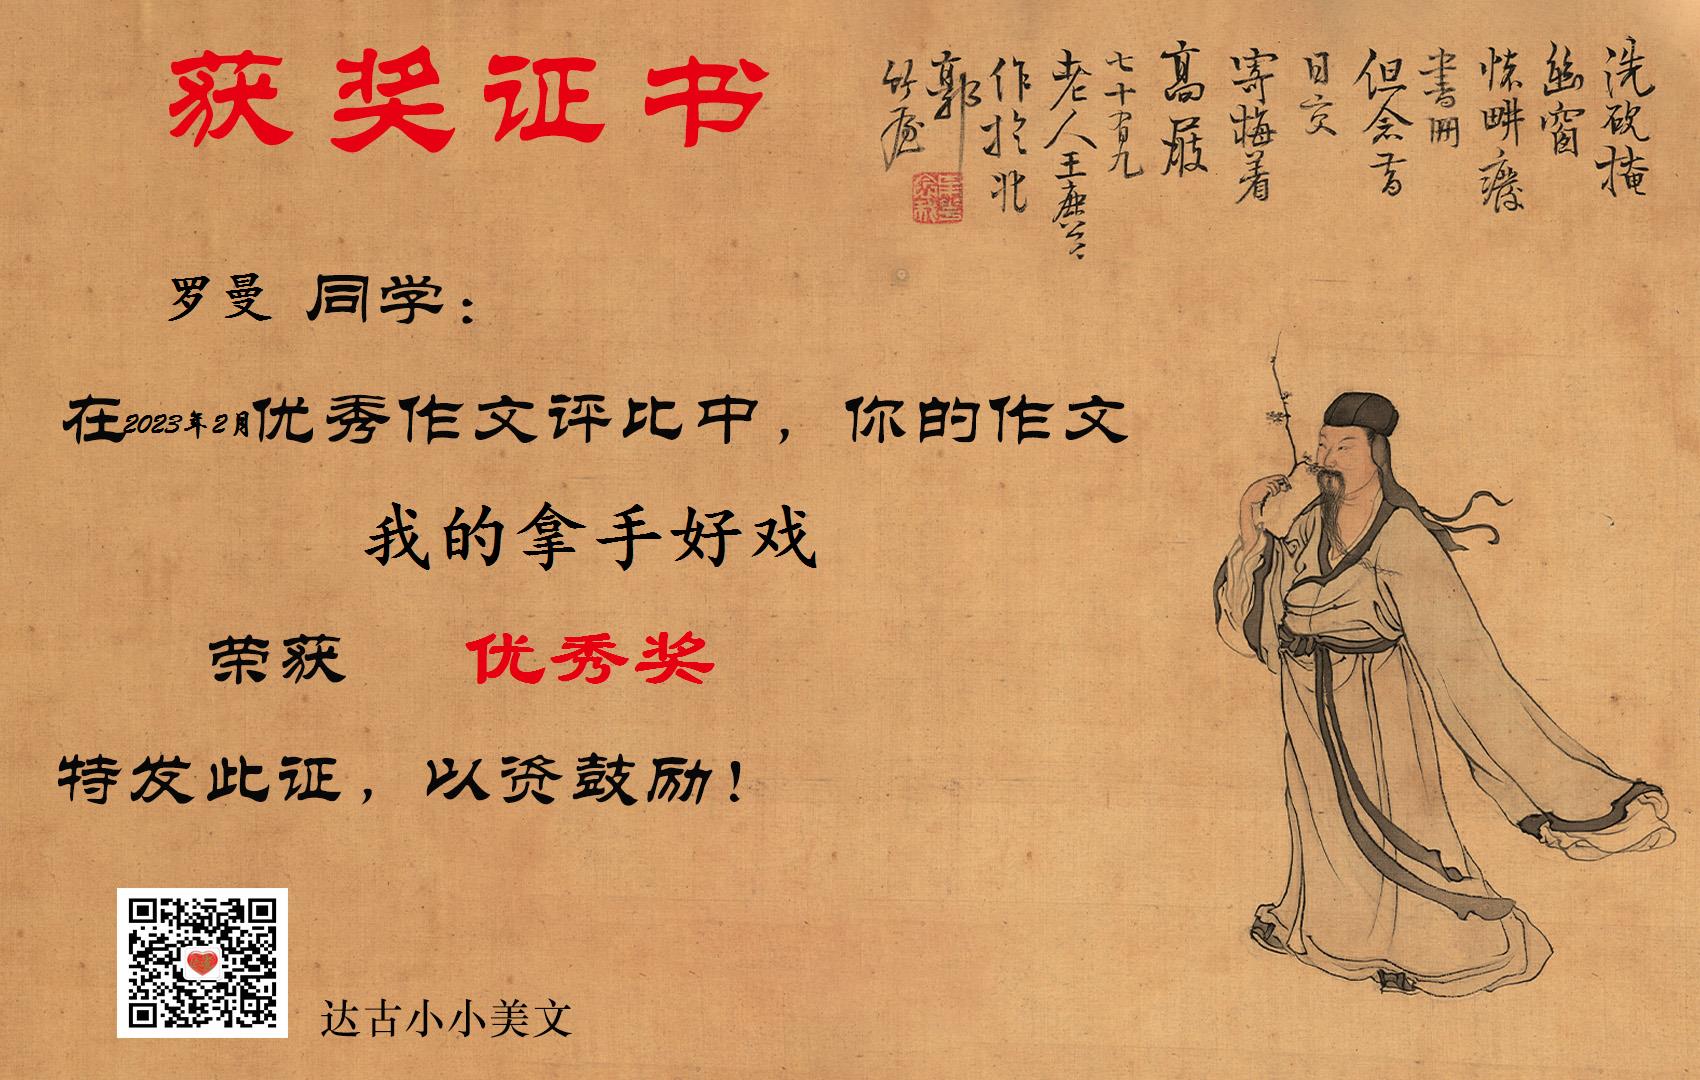 获奖证书
罗曼 同学：
在2023年2月优秀作文评比中，你的作文
我的拿手好戏
荣获 优秀奖
特发此证，以资鼓励！
达古小小美文
洗砚掩
幽窗
怀畊癈
書冊
但念昔
日交
寄梅着
高屐
七十有九
老人王
作於北
郭
竹